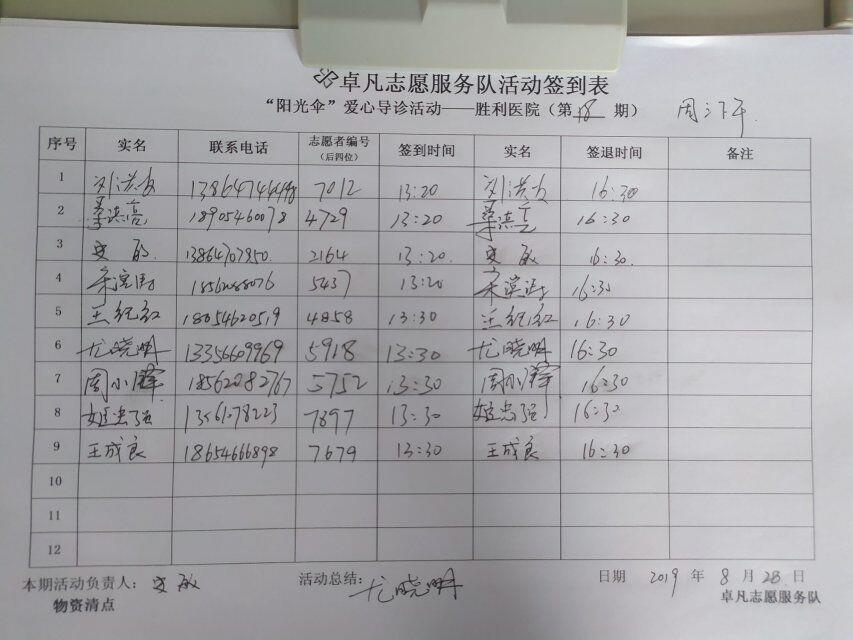 卓凡志愿服务队活动签到表
“阳光伞”爱心导诊活动——胜利医院（第 18 期） 周三下午
序号 实名 联系电话 志愿者编号（后四位） 签到时间 实名 签退时间 备注
1 刘洪友 7012 13:20 刘洪友 16:30
2 綦洪亮 18905460078 4729 13:20 綦洪亮 16:30
3 史敏 13864707950 2164 13:20 史敏 16:30
4 5437 13:20 16:30
5 王纪红 18054620519 4858 13:30 王纪红 16:30
6 尤晓明 13356609969 5918 13:30 尤晓明 16:30
7 周小辉 18562082767 5752 13:30 周小辉 16:30
8 姬忠强 13561078223 7897 13:30 姬忠强 16:30
9 王成良 18654666898 7679 13:30 王成良 16:30
10
11
12
本期活动负责人：史敏 活动总结：尤晓明 日期 2019 年 8 月 28 日
物资清点 卓凡志愿服务队